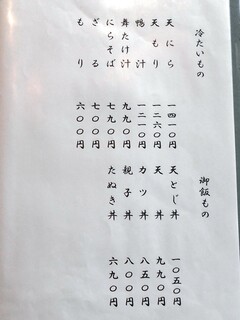 冷たいもの
天にら 一四一〇円
天もり 一二六〇円
鴨汁 一二一〇円
舞たけ汁 九九〇円
にらそば 七九〇円
ざる 七〇〇円
もり 六〇〇円
御飯もの
天とじ丼 一〇五〇円
天丼 九九〇円
カツ丼 八五〇円
親子丼 八〇〇円
たぬき丼 六九〇円